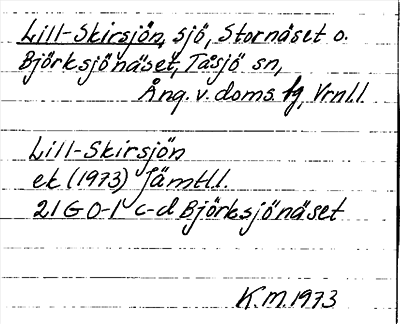 Lill-Skirsjön, sjö, Stornäset o.
Björksjönäset, Tåsjö sn,
Ång. v. doms. fg, Vrnl.l.
Lill-Skirsjön
ek (1973) Jämtl.l.
21G 0-1 c-d Björksjönäset
K.M. 1973